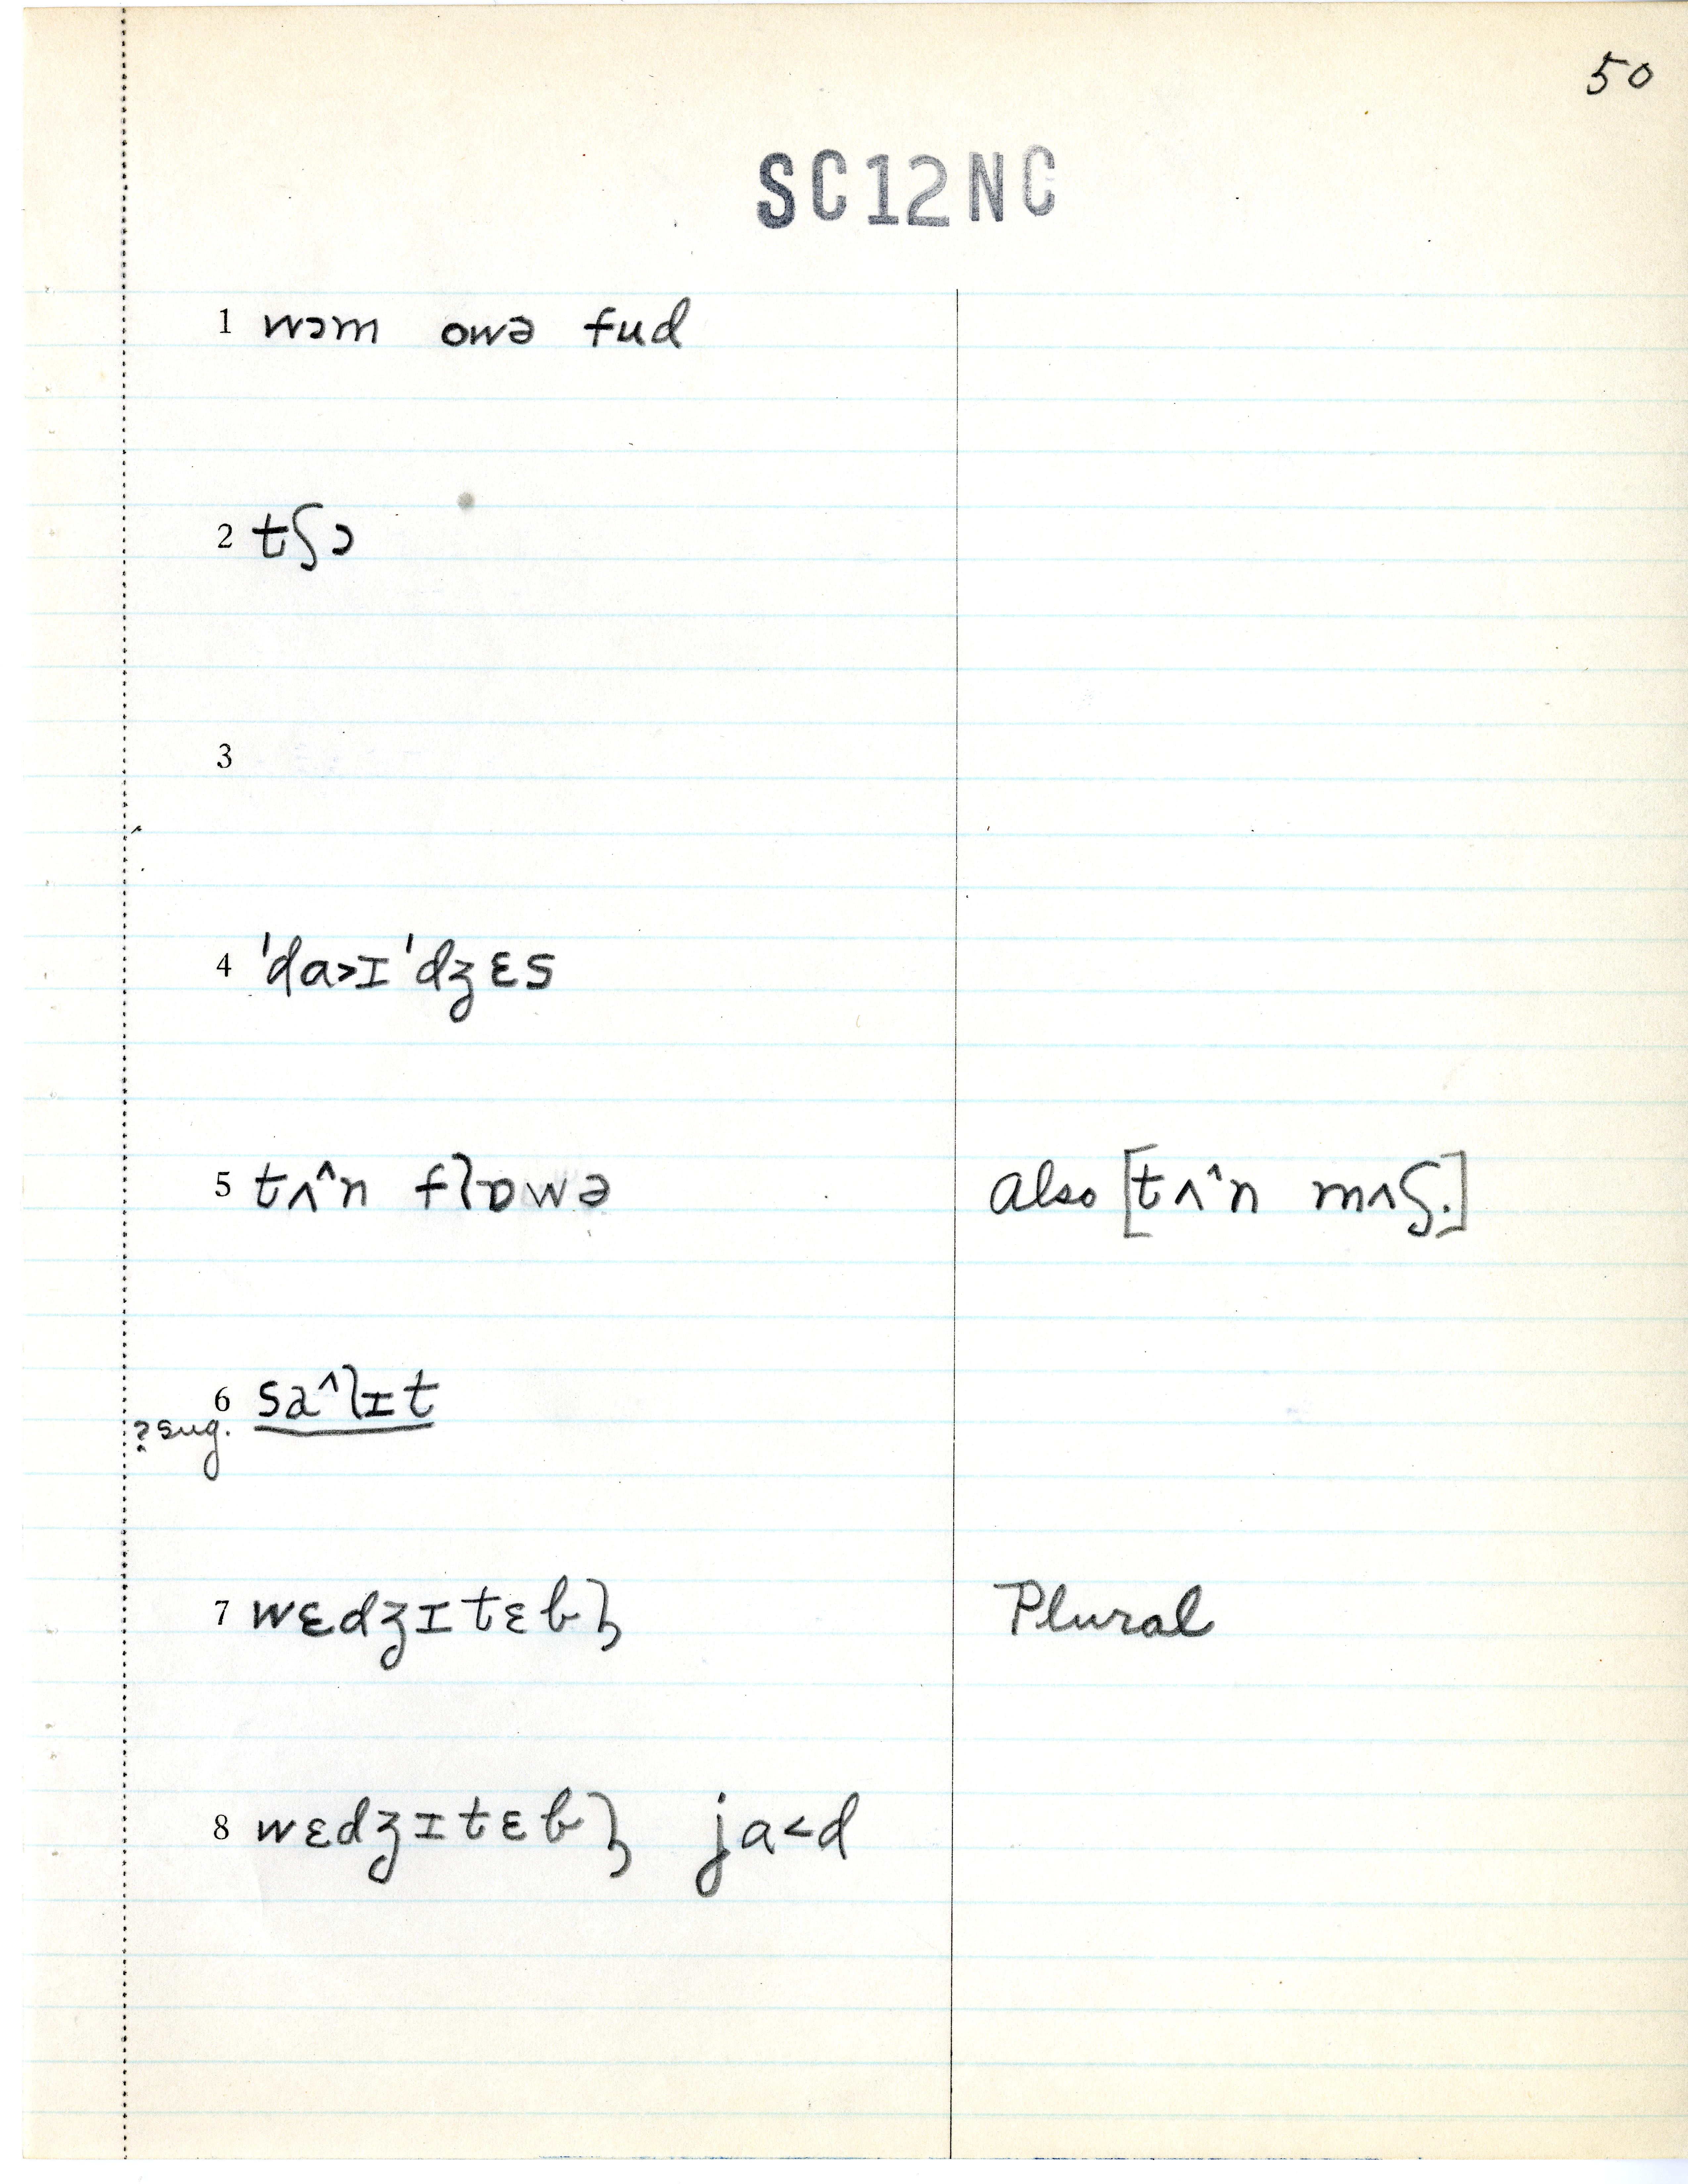 50
SC12NC
1 wɔm owə fud
2 tʃɔ
3
4 ˈda˃ɪˈdʒɛs
5 tʌ^n flɒwə also [tʌ^n mʌʃ.]
6 sa^lɪt
? sug.
7 wɛdʒɪtɛbḷ Plural
8 wɛdʒɪtɛbḷ ja˂d